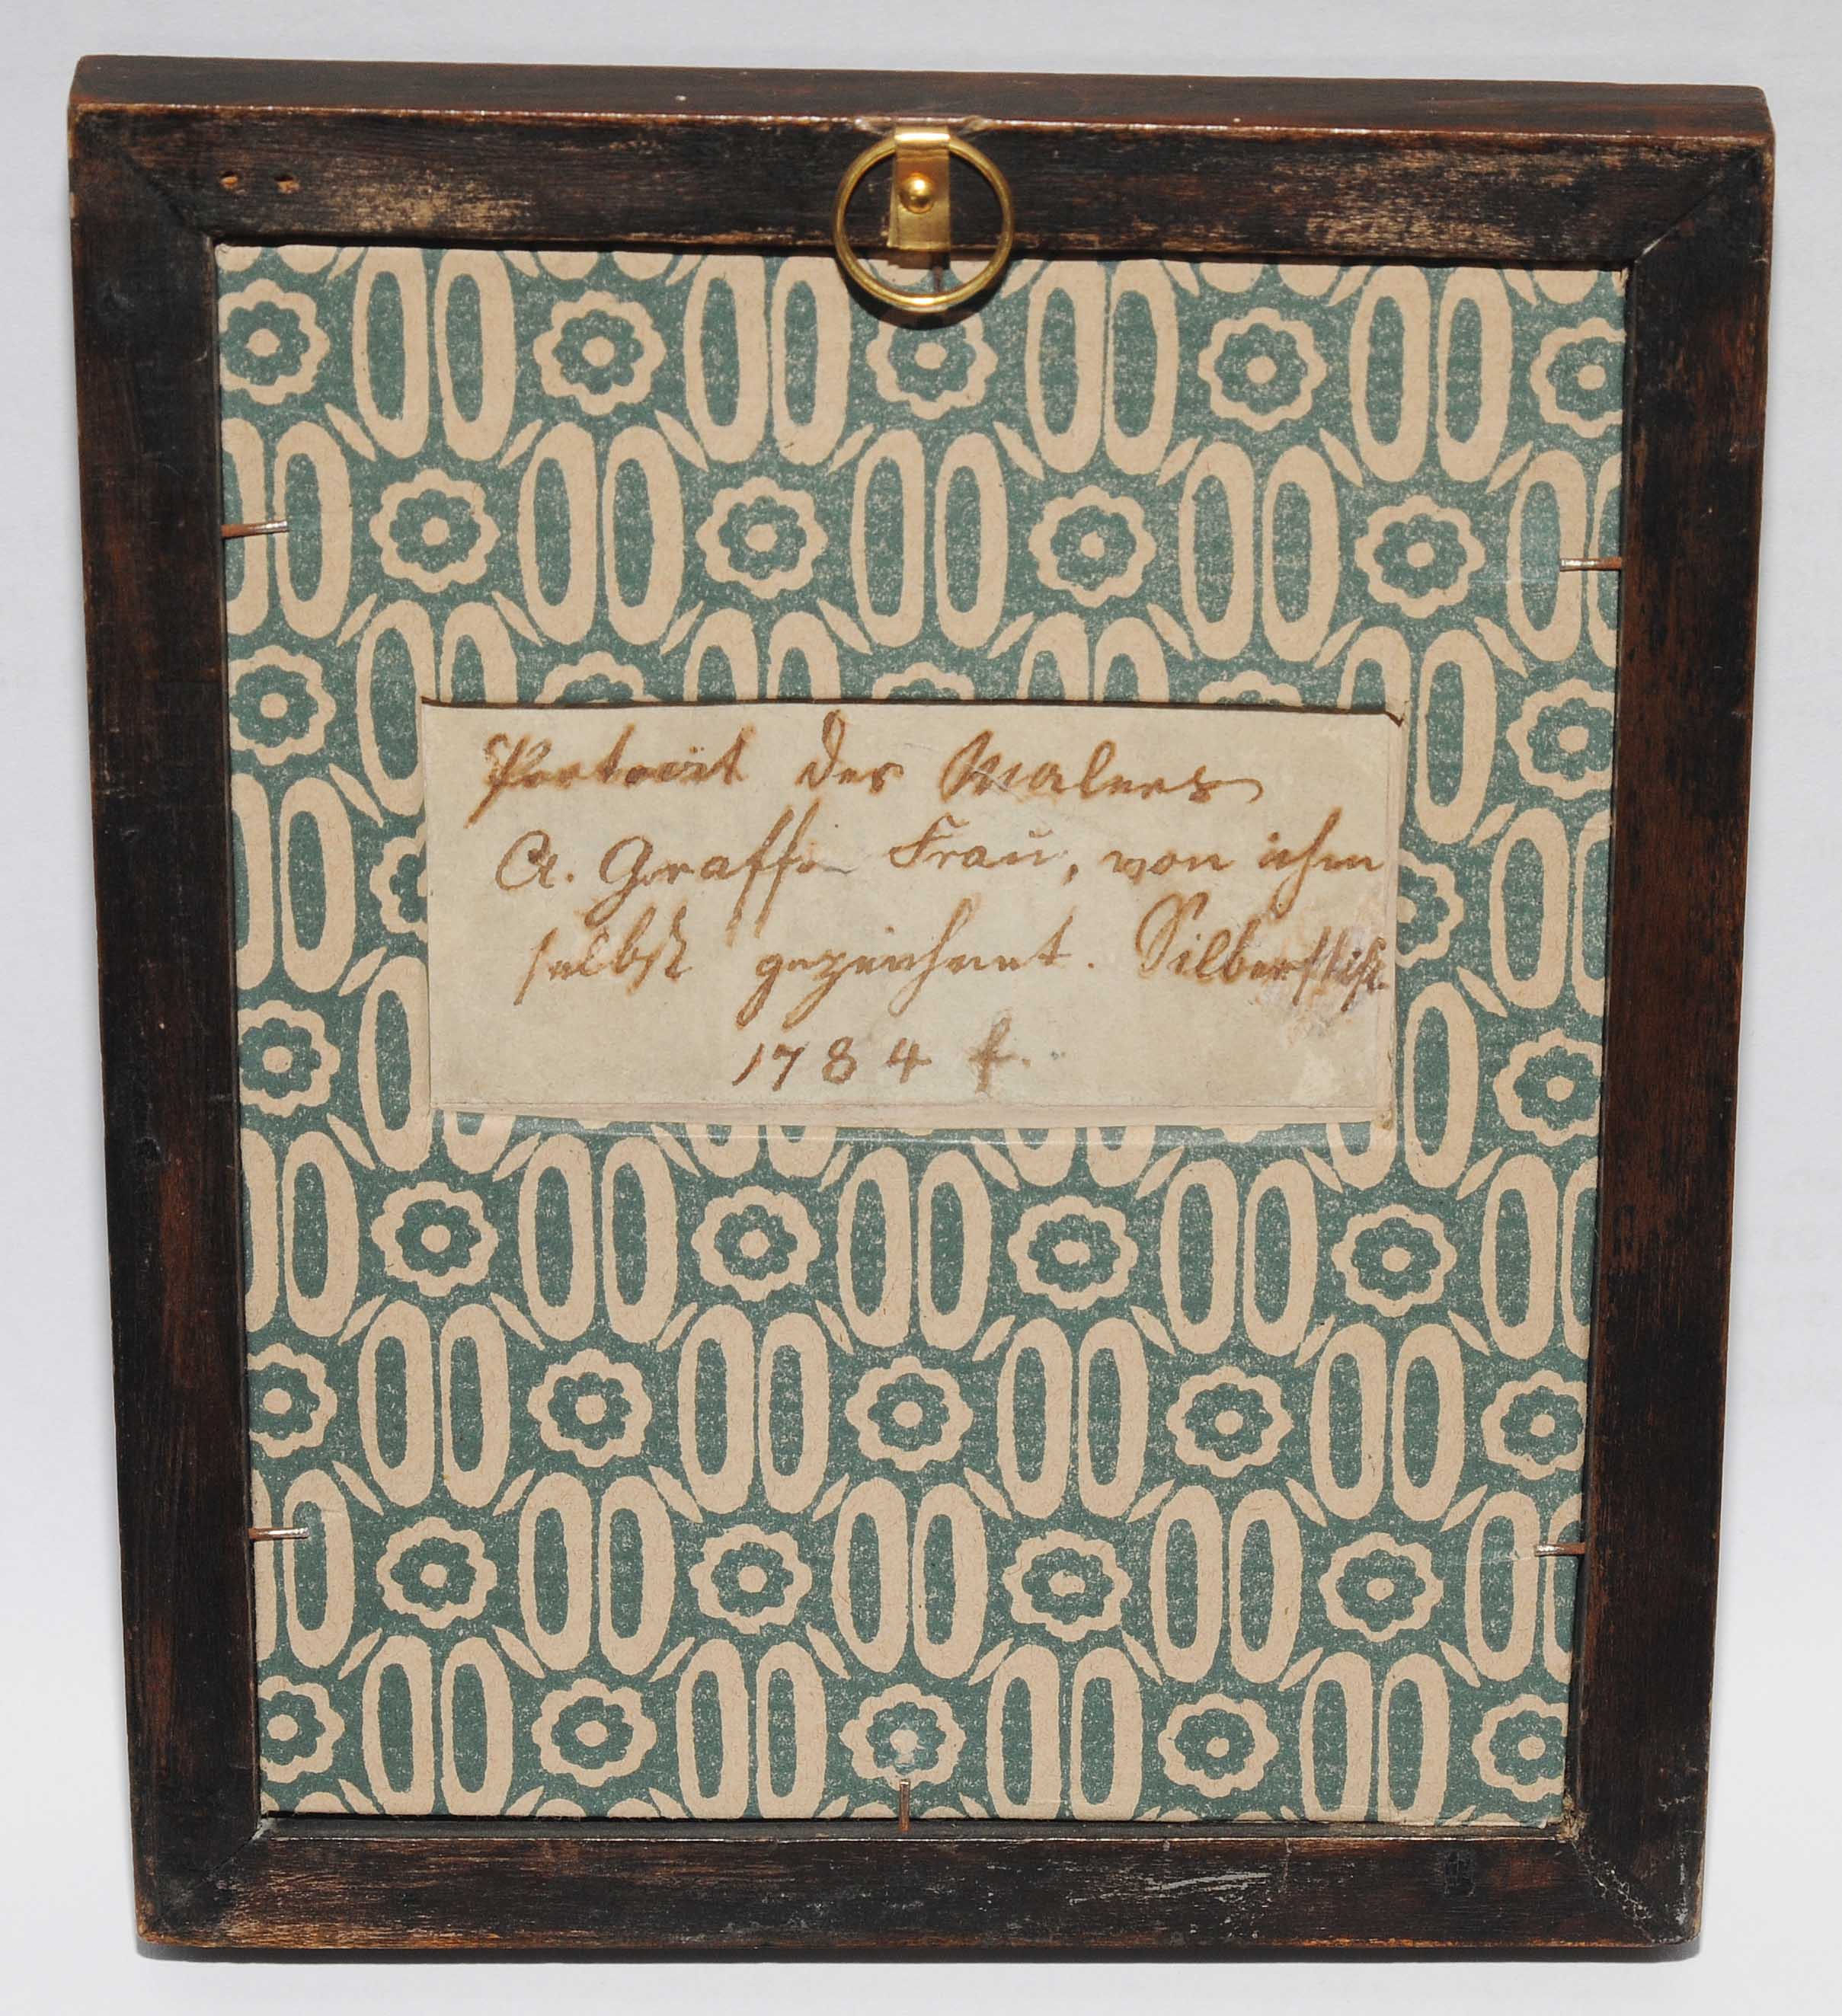 Porträt des Malers
A. Graffs Frau, von ihm
selbst gezeichnet. Silberstift.
1784 f.